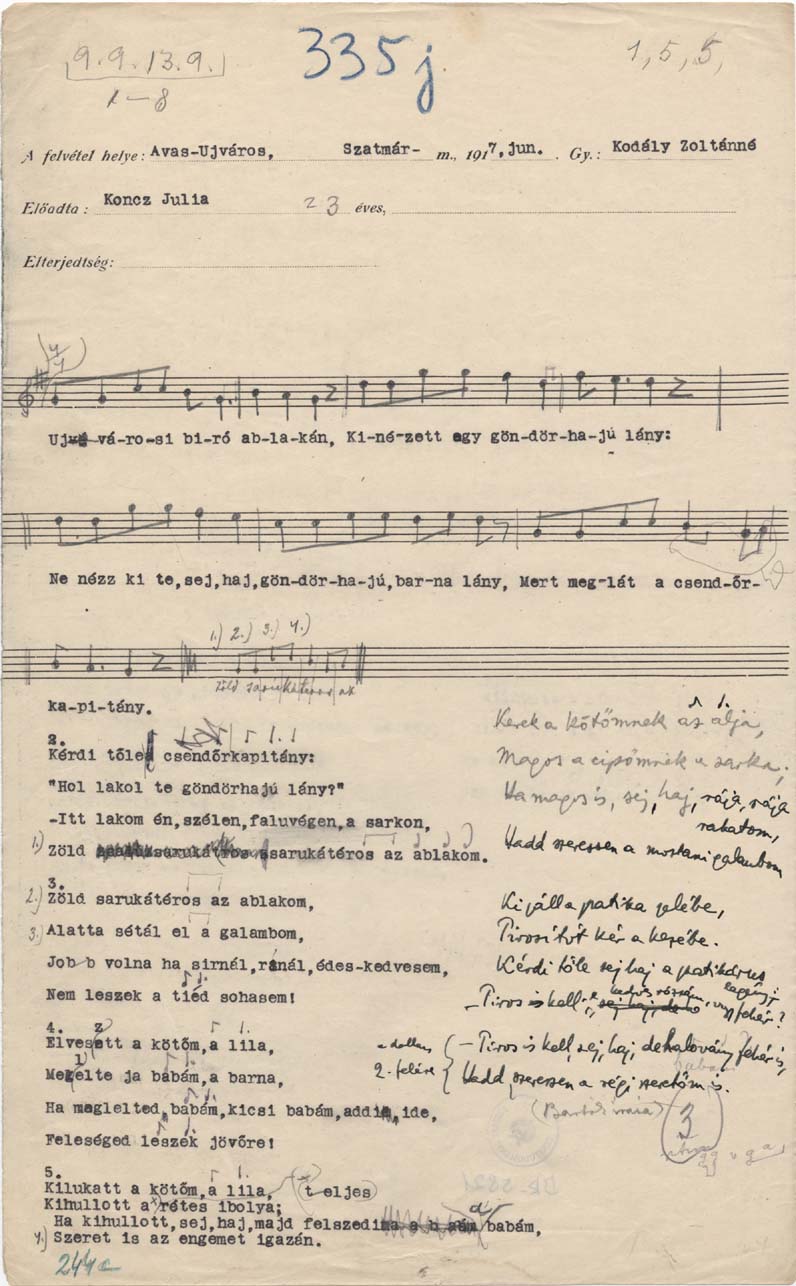 9. 9. 13. 9.
1-8
335j.
1, 5, 5,
A felvétel helye: Avas-Ujváros, Szatmár- m., 1917, jun. Gy.: Kodály Zoltánné
Előadta: Koncz Julia 23 éves,
Elterjedtség:
Uj vá-ro-si bi-ró ab-la-kán, Ki-né-zett egy gön-dör-ha-jú lány:
Ne nézz ki te,sej,haj,gön-dör-ha-jú,bar-na lány, Mert meg-lát a csend-őr-
1.) 2.) 3.) 4.)
Zöld
ka-pi-tány.
2.
Kérdi tőle csendőrkapitány:
"Hol lakol te göndörhajú lány?"
-Itt lakom én,szélen,faluvégen,a sarkon,
1.) Zöld sarukátéros az ablakom.
3.
2.) Zöld sarukátéros az ablakom,
3.) Alatta sétál el a galambom,
Job b volna ha sirnál,ránál,édes-kedvesem,
Nem leszek a tiéd sohasem!
4.
Elveszett a kötőm,a lila,
Meglelte ja babám,a barna,
Ha meglelted,babám,kicsi babám,addi,ide,
Feleséged leszek jövőre!
5.
Kilukatt a kötőm,a lila, (teljes)
Kihullott a rétes ibolya;
Ha kihullott,sej,haj,majd felszedi a babám,
4.) Szeret is az engemet igazán.
244c
Kerek a kötőmnek az alja,
Magos a cipőmnek a sarka,
Ha magos is, sej, haj, rája, rája
rakatom,
Hadd szeressen a mostani galambom
Kijáll a patika elébe,
Pirosítót kér a kezébe.
Kérdi tőle sej haj a patikárus
legény:
- Piros is kell, kedves rózsám, vagy fehér?
a dallam
2. felére
- Piros is kell, sej, haj, de halovány fehér is,
Hadd szeressen a régi szeretőm is.
(Bartók írása)
3